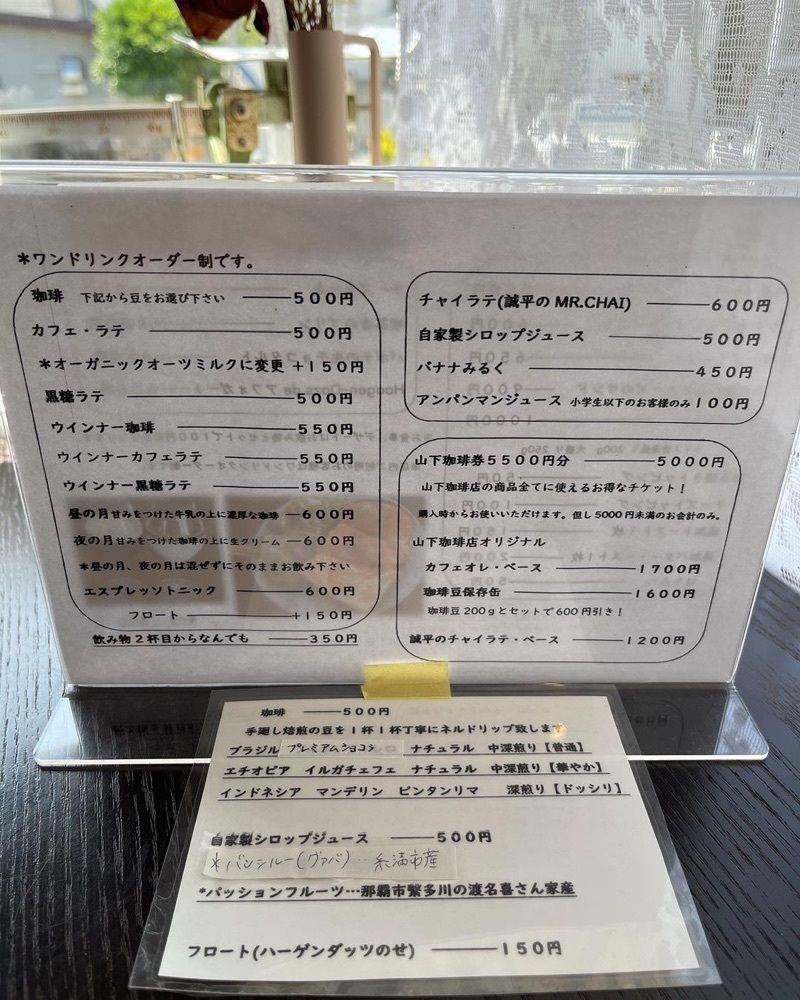 *ワンドリンクオーダー制です。
珈琲 下記から豆をお選び下さい ―――500円
カフェ・ラテ ―――500円
*オーガニックオーツミルクに変更 +150円
黒糖ラテ ―――500円
ウインナー珈琲 ―――550円
ウインナーカフェラテ ―――550円
ウインナー黒糖ラテ ―――550円
昼の月甘みをつけた牛乳の上に濃厚な珈琲 ―600円
夜の月甘みをつけた珈琲の上に生クリーム ―600円
*昼の月、夜の月は混ぜずにそのままお飲み下さい
エスプレッソトニック ―――600円
フロート ―――+150円
飲み物2杯目からなんでも ―――350円
チャイラテ(誠平の MR.CHAI) ―――600円
自家製シロップジュース ―――500円
バナナみるく ―――450円
アンパンマンジュース 小学生以下のお客様のみ 100円
山下珈琲券5500円分 ―――5000円
山下珈琲店の商品全てに使えるお得なチケット！
購入時からお使いいただけます。但し5000円未満のお会計のみ。
山下珈琲店オリジナル
カフェオレ・ベース ―――1700円
珈琲豆保存缶 ―――1600円
珈琲豆200gとセットで600円引き！
誠平のチャイラテ・ベース ―――1200円
珈琲 ―――500円
手廻し焙煎の豆を1杯1杯丁寧にネルドリップ致します
ブラジル プレミアムショコラ ナチュラル 中深煎り【普通】
エチオピア イルガチェフェ ナチュラル 中深煎り【華やか】
インドネシア マンデリン ビンタンリマ 深煎り【ドッシリ】
自家製シロップジュース ―――500円
*バンシルー(グァバ)…糸満市産
*パッションフルーツ…那覇市繁多川の渡名喜さん家産
フロート(ハーゲンダッツのせ) ―――150円